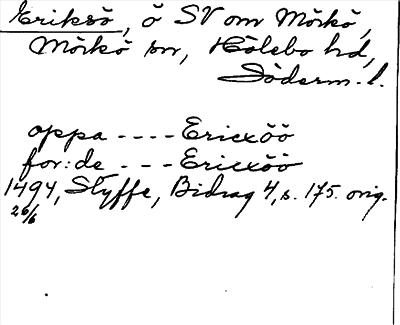 Eriksö, ö SV om Mörkö,
Mörkö sn, Hölebo hd,
Söderm. l.
oppa - - - - Ericxöö
for: de - - - Ericxöö
1494, Styffe, Bidrag 4, s. 175. orig.
26/6